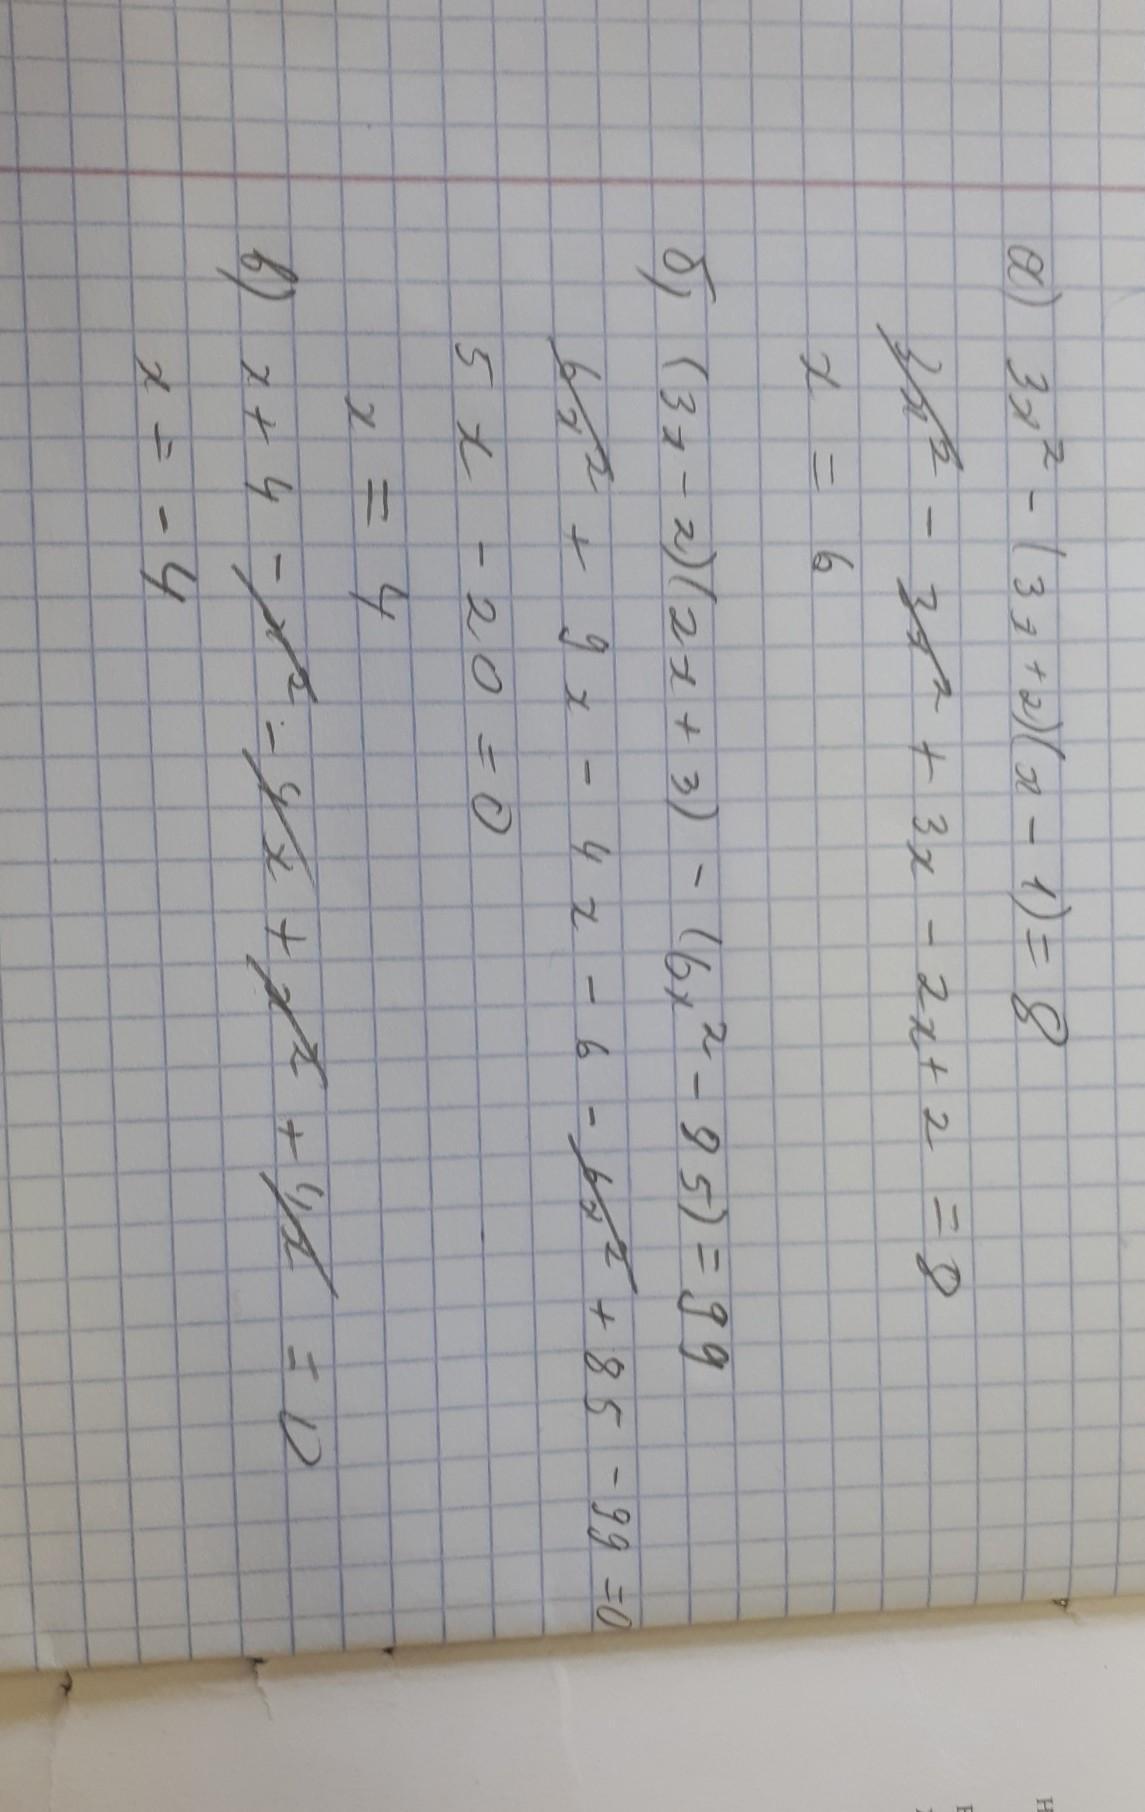 а) 3x² - (3x+2)(x-1) = 8
3x² - 3x² + 3x - 2x + 2 = 8
x = 6
б) (3x-2)(2x+3) - (6x² - 95) = 99
6x² + 9x - 4x - 6 - 6x² + 85 - 99 = 0
5x - 20 = 0
x = 4
в) x + 4 - x² - 4x + x² + 4x = 0
x = -4